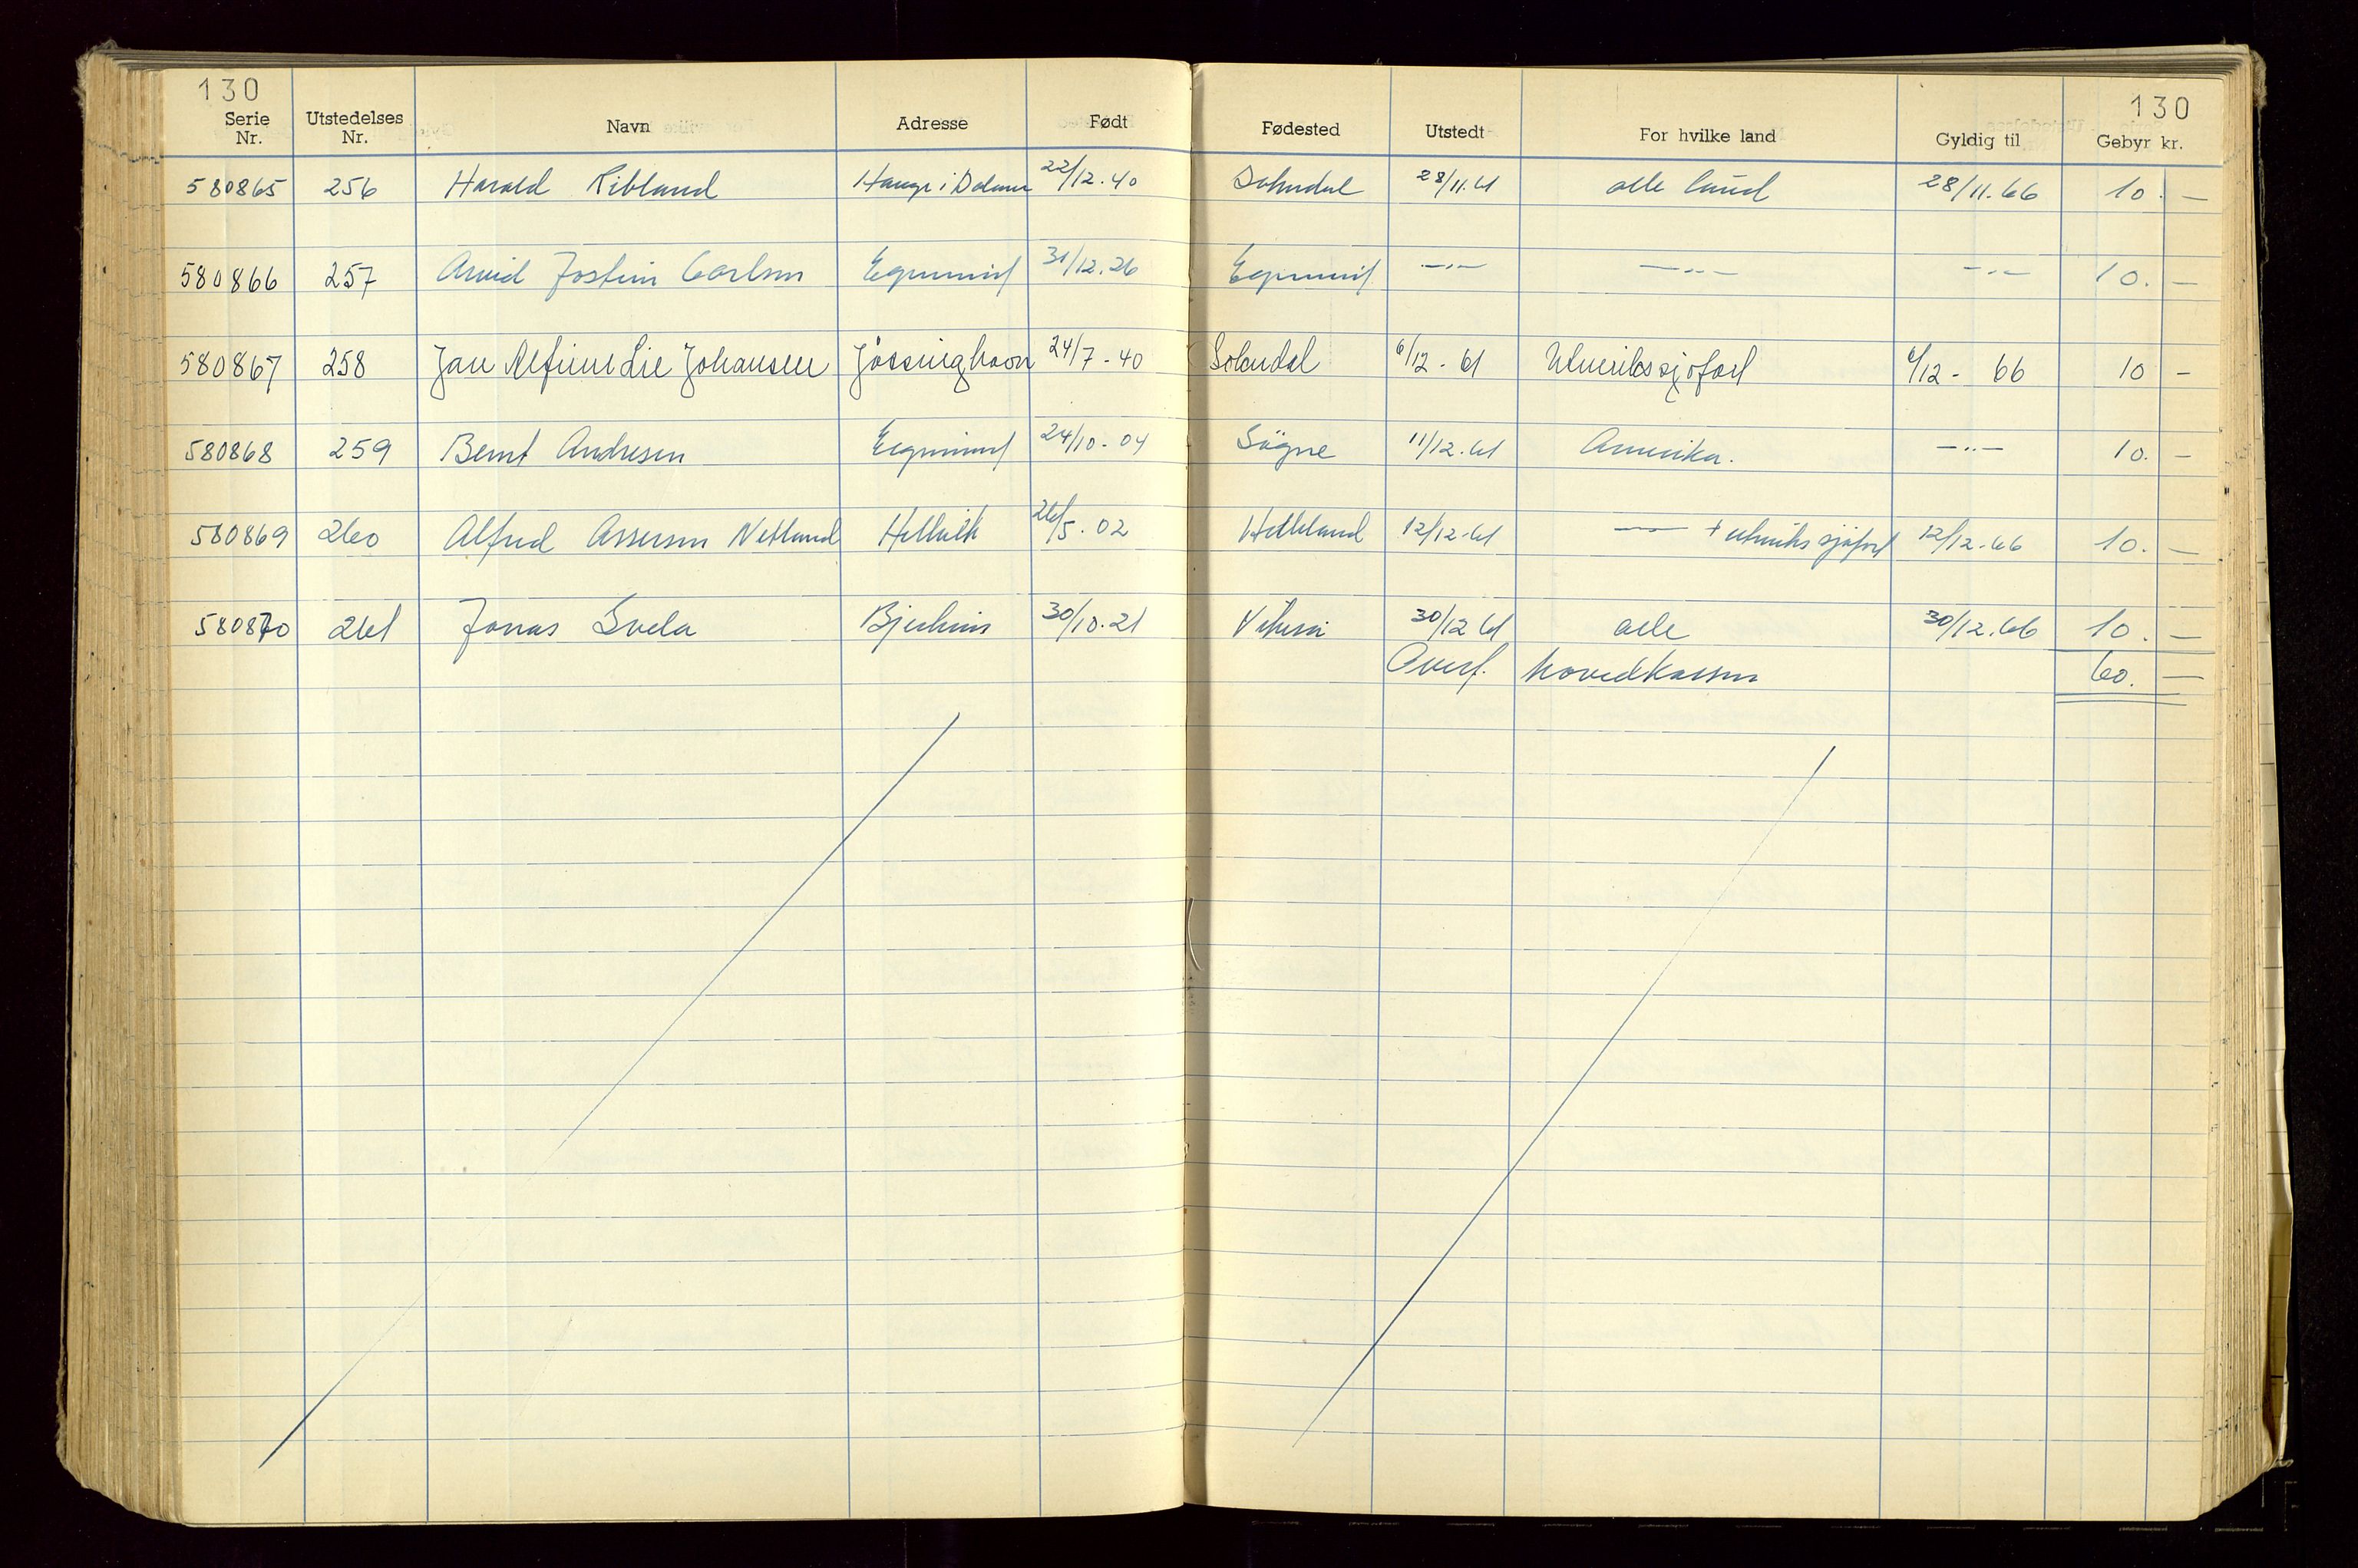 130 130
Serie Nr. Utstedelses Nr. Navn Adresse Født Fødested Utstedt For hvilke land Gyldig til Gebyr kr.
580865 256 Harald Ribland Hauge i Dalane 22/12.40 Sokndal 28/11.61 alle land 28/11.66 10. —
580866 257 Arvid Jostein Carlsen Egersund 31/12.26 Egersund —"— —"— —"— 10. —
580867 258 Jan Alfinn Lie Johansen Jøssinghavn 24/7-40 Sokndal 6/12-61 Utenrikssjøfart 6/12-66 10 -
580868 259 Bernt Andresen Egersund 24/10-04 Søgne 11/12.61 Amerika. —"— 10. —
580869 260 Alfred Assersen Netland Hellvik 26/5.02 Helleland 12/12-61 —"— + utenriks sjøfart 12/12.66 10. —
580870 261 Jonas Svela Bjerkreim 30/10.21 30/12 61 alle 30/12.66 10. —
Overf. hovedkassen 60. —